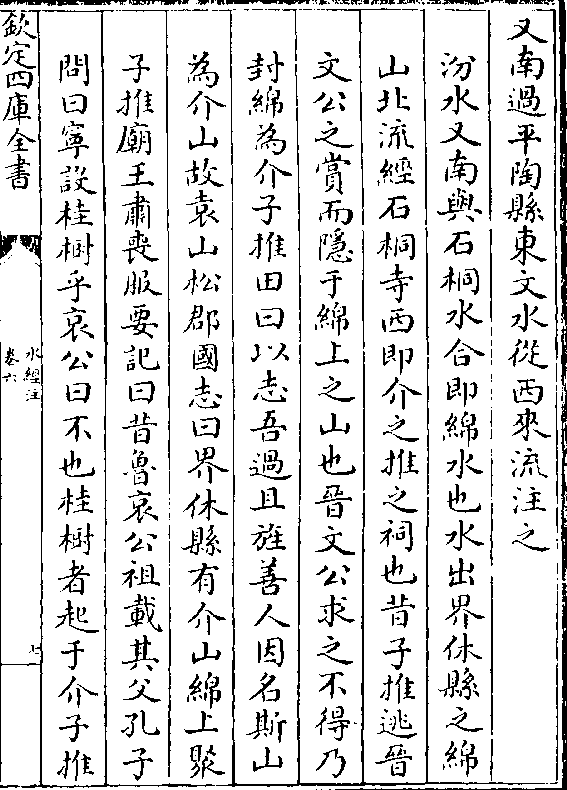 又南過平陶縣東文水從西來流注之
汾水又南與石桐水合即綿水也水出界休縣之綿
山北流經石桐寺西即介之推之祠也昔子推逃晉
文公之賞而隱于綿上之山也晉文公求之不得乃
封綿為介子推田曰以志吾過且旌善人因名斯山
為介山故袁山松郡國志曰界休縣有介山綿上聚
子推廟王肅喪服要記曰昔魯哀公祖載其父孔子
問曰寧設桂樹乎哀公曰不也桂樹者起于介子推
欽定四庫全書
水經注
卷六
七